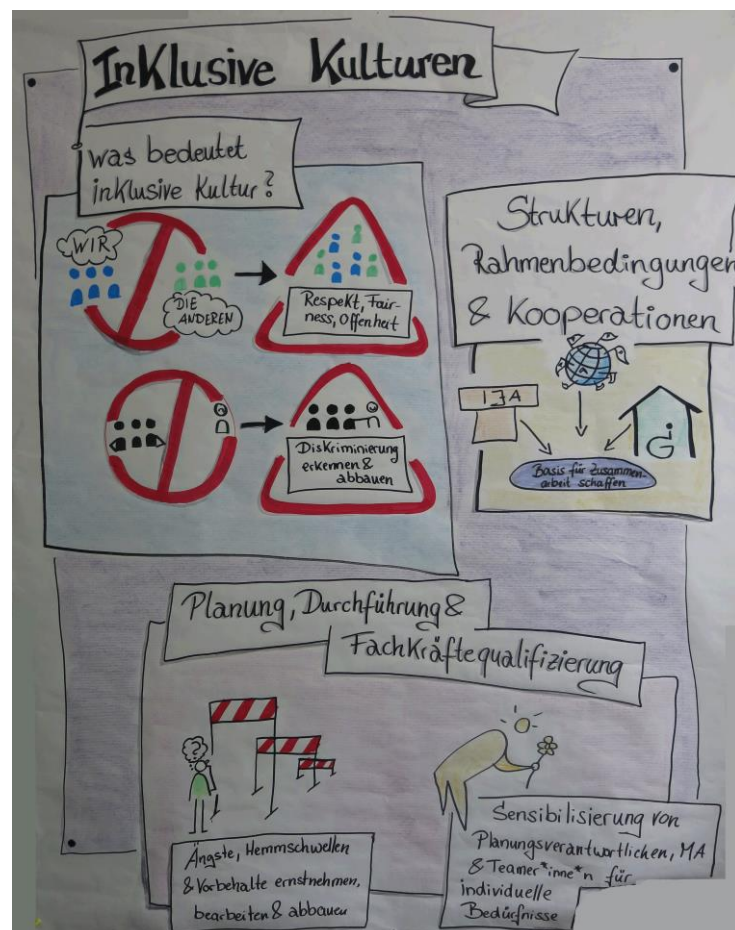 Inklusive Kulturen
Was bedeutet
inklusive Kultur?
WIR
DIE
ANDEREN
Respekt, Fair-
ness, Offenheit
Diskriminierung
erkennen &
abbauen
Strukturen,
Rahmenbedingungen
& Kooperationen
IJA
Basis für Zusammen-
arbeit schaffen
Planung, Durchführung &
Fachkräftequalifizierung
?
Ängste, Hemmschwellen
& Vorbehalte ernstnehmen,
bearbeiten & abbauen
Sensibilisierung von
Planungsverantwortlichen, MA
& Teamer*inne*n für
individuelle
Bedürfnisse